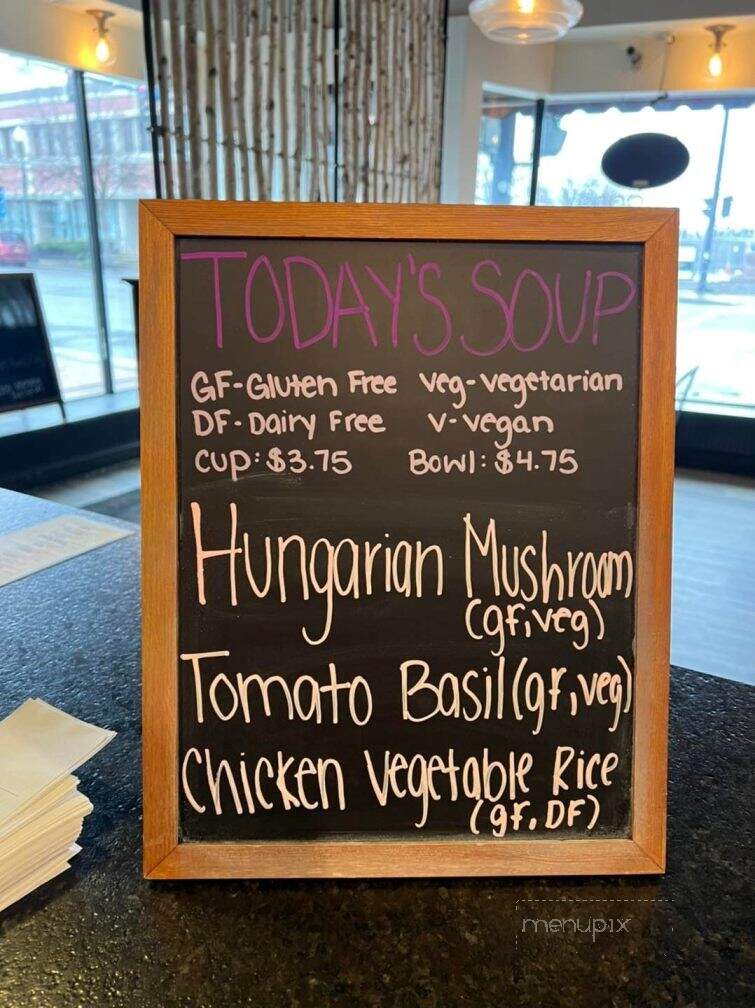 TODAY'S SOUP
GF-Gluten Free veg-vegetarian
DF-Dairy Free v-vegan
Cup: $3.75 Bowl: $4.75
Hungarian Mushroom
(gf, veg)
Tomato Basil (gf, veg)
Chicken Vegetable Rice
(gf, DF)
menupix